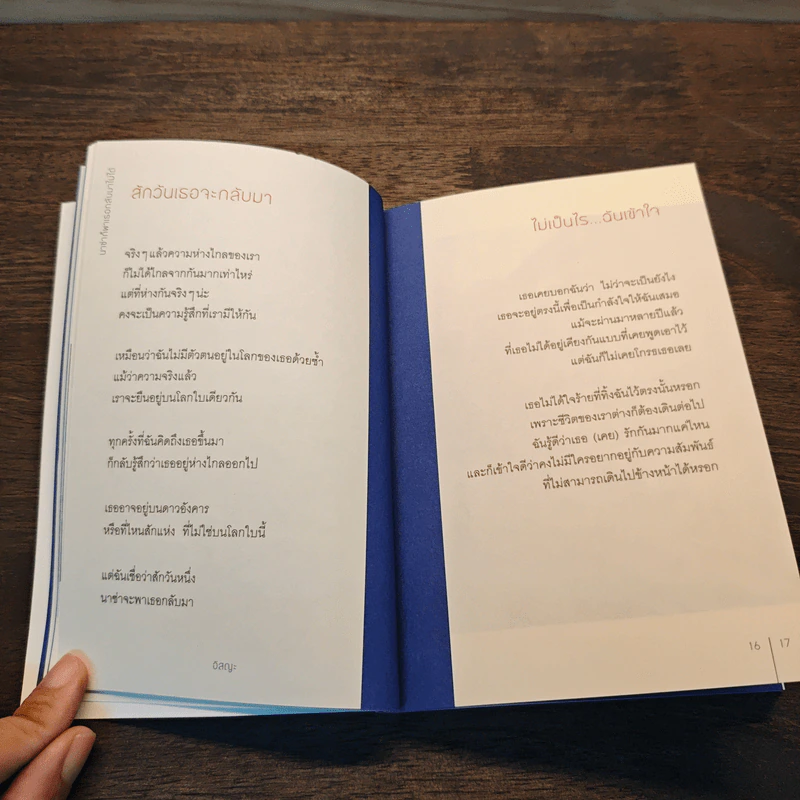 นาซ่าก็พาเธอกลับมาไม่ได้
สักวันเธอจะกลับมา
จริงๆแล้วความห่างไกลของเรา
ก็ไม่ได้ไกลจากกันมากเท่าไหร่
แต่ที่ห่างกันจริงๆน่ะ
คงจะเป็นความรู้สึกที่เรามีให้กัน
เหมือนว่าฉันไม่มีตัวตนอยู่ในโลกของเธอด้วยซ้ำ
แม้ว่าความจริงแล้ว
เราจะยืนอยู่บนโลกใบเดียวกัน
ทุกครั้งที่ฉันคิดถึงเธอขึ้นมา
ก็กลับรู้สึกว่าเธออยู่ห่างไกลออกไป
เธออาจอยู่บนดาวอังคาร
หรือที่ไหนสักแห่ง ที่ไม่ใช่บนโลกใบนี้
แต่ฉันเชื่อว่าสักวันหนึ่ง
นาซ่าจะพาเธอกลับมา
อิสญะ
ไม่เป็นไร...ฉันเข้าใจ
เธอเคยบอกฉันว่า ไม่ว่าจะเป็นยังไง
เธอจะอยู่ตรงนี้เพื่อเป็นกำลังใจให้ฉันเสมอ
แม้จะผ่านมาหลายปีแล้ว
ที่เธอไม่ได้อยู่เคียงกันแบบที่เคยพูดเอาไว้
แต่ฉันก็ไม่เคยโกรธเธอเลย
เธอไม่ได้ใจร้ายที่ทิ้งฉันไว้ตรงนั้นหรอก
เพราะชีวิตของเราต่างก็ต้องเดินต่อไป
ฉันรู้ดีว่าเธอ (เคย) รักกันมากแค่ไหน
และก็เข้าใจดีว่าคงไม่มีใครอยากอยู่กับความสัมพันธ์
ที่ไม่สามารถเดินไปข้างหน้าได้หรอก
16 | 17